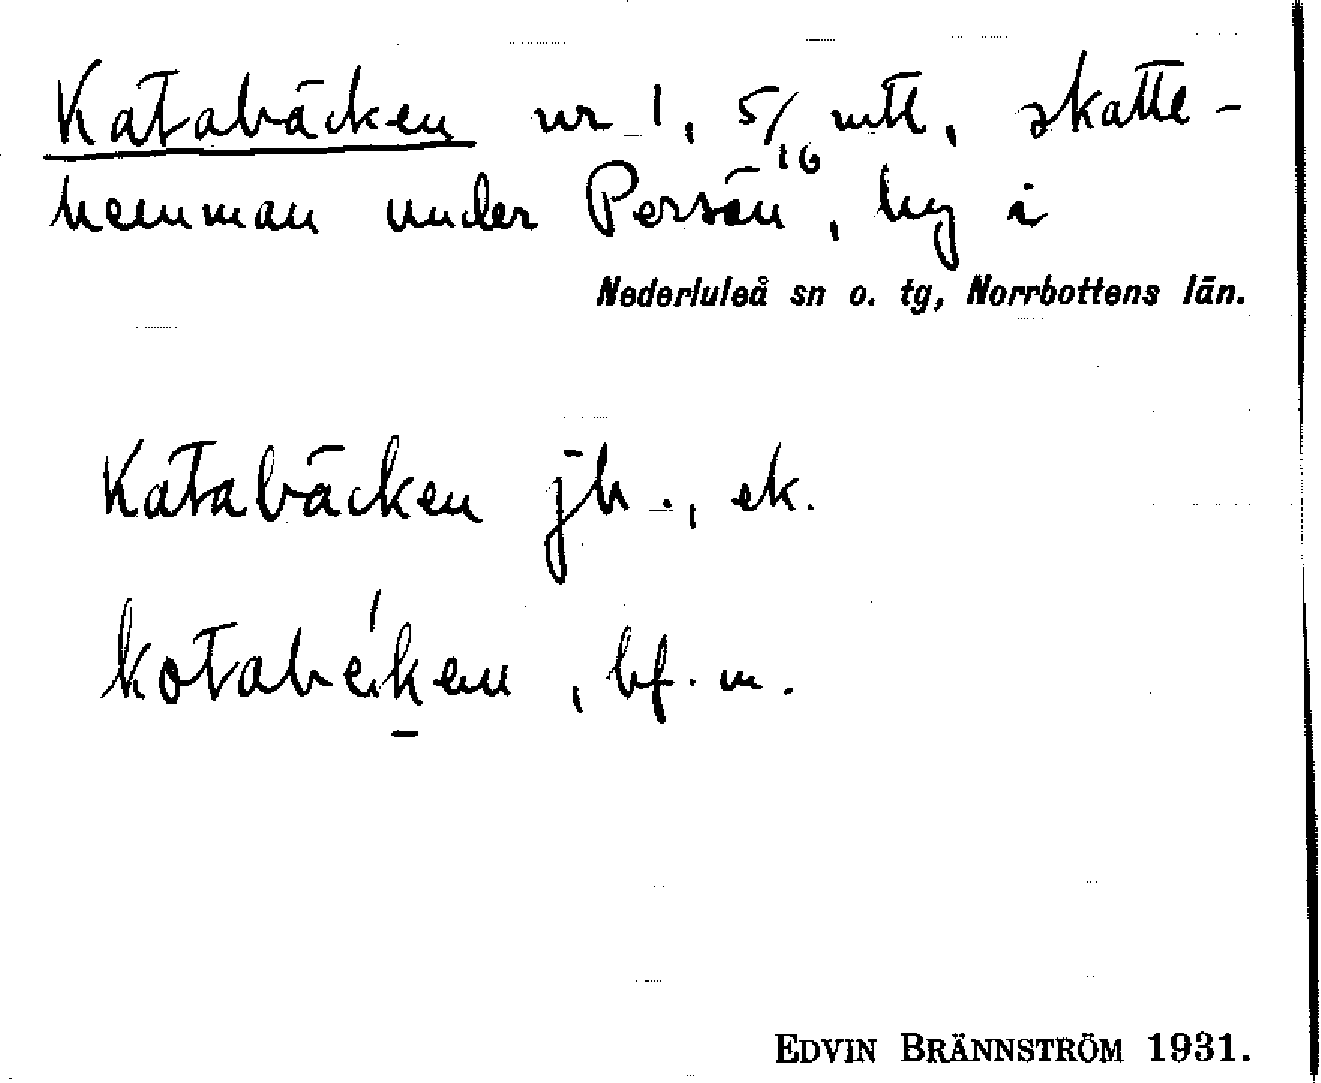 Katabäcken nr 1, 5/16 mtl, skatte-
hemman under Persön, by i
Nederluleå sn o. tg, Norrbottens län.
Katabäcken jb., ek.
kotabéken, bf. m.
EDVIN BRÄNNSTRÖM 1931.